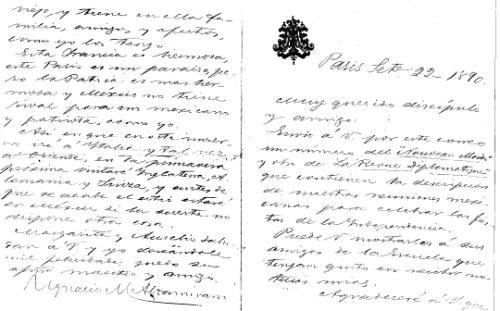 Paris Sete 22-1890.
Muy querido discípulo
y amigo:
Envío á V por este correo
un número del "Nouveau Monde"
y otro de La Revue Diplomatique
que contienen la descripción
de nuestras reuniones mexi-
canas para celebrar las fies-
tas de la Independencia.
Puede V mostrarlos á sus
amigos de la Escuela que
tengan gusto en recibir no-
ticias mías.
Agradeceré á V que
viejo, y tiene en ella fa-
milia, amigos y afectos,
como yo los tengo.
Esta Francia es hermosa,
este París es un paraíso, pe-
ro la Patria es mas her-
mosa y México no tiene
rival para un mexicano
y patriota, como yo.
Así es que en este invier-
no iré á Italia y tal vez
al Oriente, en la primavera
próxima visitaré Inglaterra, A-
lemania y Suiza, y antes de
que acabe el estío estaré
en México si la suerte no
dispone otra cosa.
Margarita y Aurelio salu-
dan á V y yo deseándole
mil felicidades quedo su
afmo maestro y amigo.
Ignacio M. Altamirano